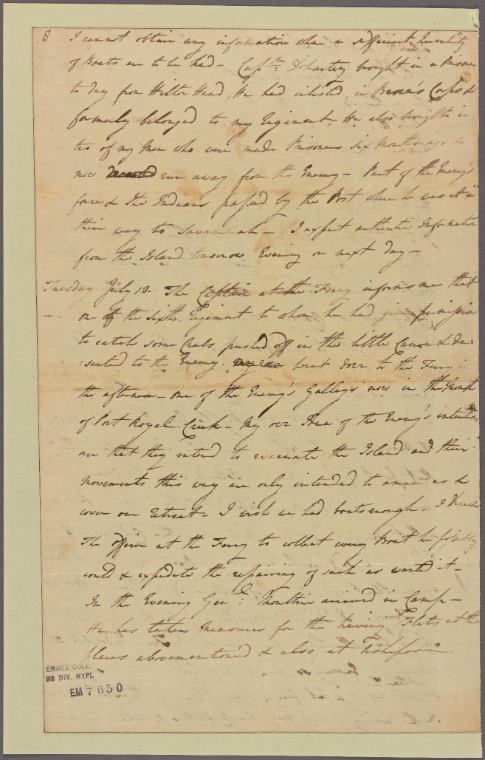 8 I cannot obtain any information when a sufficient quantity
of Boats are to be had - Captn. brought in a Prisoner
to day from Hilton Head, He had inlisted in Brown's Corps &
formerly belonged to my Regiment, He also brought in
two of my Men who were made Prisoners Six Months ago &
now run away from the Enemy - Part of the Enemy's
force & the Indians passed by the Post when he was at in
their way to Savannah - I expect authentic Information
from the Island tomorrow Evening or next day -
Tuesday July 13. The Captain at the Ferry informs me that
one of the Sixth Regiment to whom he had permission
to catch some Crabs pushed off in the little Canoe & de-
:serted to the Enemy. went down to the Ferry in
the afternoon - One of the Enemy's Galleys now in the Mouth
of Port Royal Creek - My own Idea of the Enemy's intentions
are that they intend to evacuate the Island and their
movements this way are only intended to amuse us &
cover our retreat - I wish we had boats enough - I
The officer at the Ferry to collect every Boat he possibly
could & expedite the repairing of such as wanted it -
In the Evening Genl. Moultrie arrived in Camp -
He has taken measures for the having Flats at the
places abovementioned & also at
EMMET COLL.
MS DIV. NYPL
EM 7650